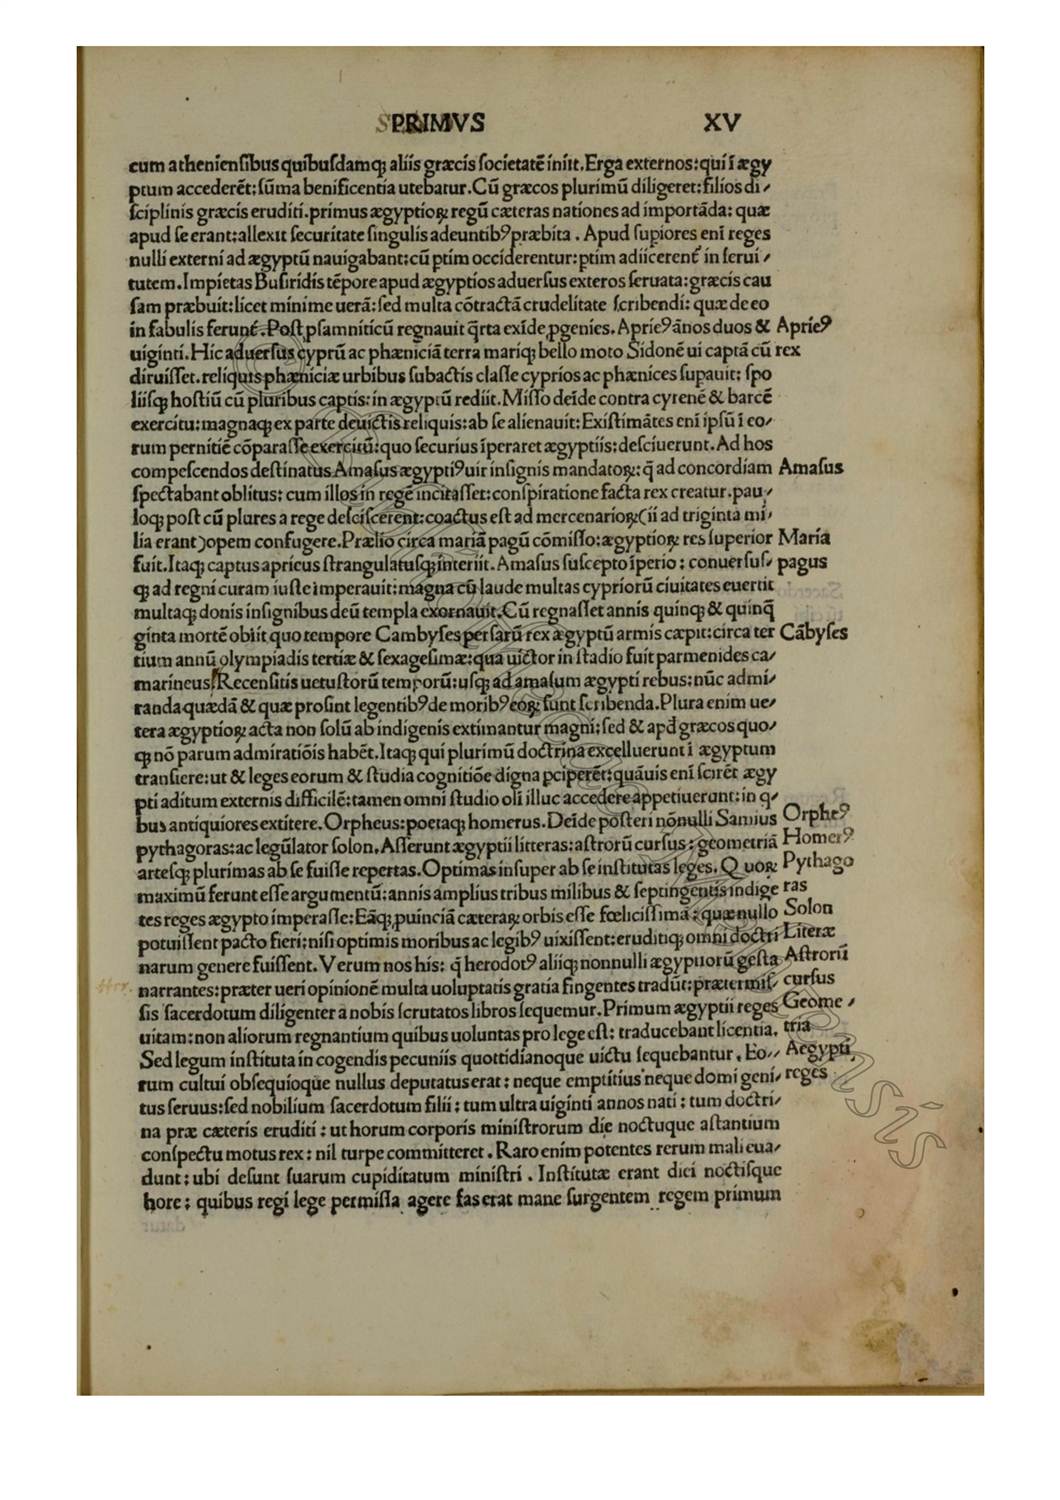 PRIMVS XV
cum atheniensibus quibusdamqꝫ aliis græcis societatē iniit. Erga externos: qui ī ægy
ptum accederēt: sūma benificentia utebatur. Cū græcos plurimū diligeret: filios di⸗
sciplinis græcis eruditi. primus ægyptioꝝ regū cæteras nationes ad importāda: quæ
apud se erant: allexit securitate singulis adeuntibꝰ præbita. Apud supiores eni reges
nulli externi ad ægyptū nauigabant: cū ptim occiderentur: ptim adiicerent̄ in serui⸗
tutem. Impietas Busiridis tēpore apud ægyptios aduersus exteros seruata: græcis cau
sam præbuit: licet minime uerā: sed multa cōtractā crudelitate scribendi: quæ de eo
in fabulis ferunt̄. Post psamniticū regnauit q̄rta exīde ꝓgenies. Aprieꝰ ānos duos & Aprieꝰ
uiginti. Hic aduersus cyprū ac phæniciā terra mariqꝫ bello moto Sidonē ui captā cū rex
diruisset. reliquis phæniciæ urbibus subactis classe cyprios ac phænices supauit: spo
liisqꝫ hostiū cū pluribus captis: in ægyptū rediit. Misso deīde contra cyrenē & barcē
exercitu: magnaqꝫ ex parte deuictis reliquis: ab se alienauit: Existimātes eni ipsū ī eo⸗
rum pernitiē cōparasse exercitū: quo securius īperaret ægyptiis: desciuerunt. Ad hos
compescendos destinatus Amasus ægyptiꝰ uir insignis mandatoꝝ: q̄ ad concordiam Amasus
spectabant oblitus: cum illos in regē incitasset: conspiratione facta rex creatur. pau⸗
loqꝫ post cū plures a rege desciscerent: coactus est ad mercenarioꝝ (ii ad triginta mi⸗
lia erant) opem confugere. Prælio circa mariā pagū cōmisso: ægyptioꝝ res superior Maria
fuit. Itaqꝫ captus apricus strangulatusqꝫ interiit. Amasus suscepto īperio: conuersus⸗ pagus
qꝫ ad regni curam iuste imperauit: magna cū laude multas cypriorū ciuitates euertit
multaqꝫ donis insignibus deū templa exornauit. Cū regnasset annis quinqꝫ & quinq̄
ginta mortē obiit quo tempore Cambyses persarū rex ægyptū armis cæpit: circa ter Cābyses
tium annū olympiadis tertiæ & sexagesimæ: qua uictor in stadio fuit parmenides ca⸗
marineus. Recensitis uetustorū temporū: usqꝫ ad amasum ægypti rebus: nūc admi⸗
randa quædā & quæ prosint legentibꝰ de moribꝰ eoꝝ sunt scribenda. Plura enim ue⸗
tera ægyptioꝝ acta non solū ab indigenis extimantur magni: sed & apd̄ græcos quo⸗
qꝫ nō parum admiratiōis habēt. Itaqꝫ qui plurimū doctrina excelluerunt ī ægyptum
transiere: ut & leges eorum & studia cognitiōe digna pciperēt: quāuis eni scirēt ægy
pti aditum externis difficilē: tamen omni studio oli illuc accedere appetiuerunt: in q⸗
bus antiquiores extitere. Orpheus: poetaqꝫ homerus. Deīde posteri nōnulli Samius Orpheꝰ
pythagoras: ac legūlator solon. Asserunt ægyptii litteras: astrorū cursus: geometriā Homerꝰ
artesqꝫ plurimas ab se fuisse repertas. Optimas insuper ab se institutas leges. Quoꝝ Pythago
maximū ferunt esse argumentū: annis amplius tribus milibus & septingentis indige ras
tes reges ægypto imperasse: Eāqꝫ puinciā cæteraꝝ orbis esse fœlicissimā: quæ nullo Solon
potuissent pacto fieri: nisi optimis moribus ac legibꝰ uixissent: eruditiqꝫ omni doctri Literæ
narum genere fuissent. Verum nos his: q̄ herodotꝰ aliiqꝫ nonnulli ægyptiorū gesta Astrorū
narrantes: præter ueri opinionē multa uoluptatis gratia fingentes tradūt: prætermis⸗ cursus
sis sacerdotum diligenter a nobis scrutatos libros sequemur. Primum ægyptii reges Geome⸗
uitam: non aliorum regnantium quibus uoluntas pro lege est: traducebant licentia. tria
Sed legum instituta in cogendis pecuniis quottidianoque uictu sequebantur. Eo⸗ Aegypti
rum cultui obsequioque nullus deputatus erat: neque emptitius neque domi geni⸗ reges
tus seruus: sed nobilium sacerdotum filii: tum ultra uiginti annos nati: tum doctri⸗
na præ cæteris eruditi: ut horum corporis ministrorum die noctuque astantium
conspectu motus rex: nil turpe committeret. Raro enim potentes rerum mali eua⸗
dunt: ubi desunt suarum cupiditatum ministri. Institutæ erant diei noctisque
hore: quibus regi lege permissa agere fas erat mane surgentem regem primum